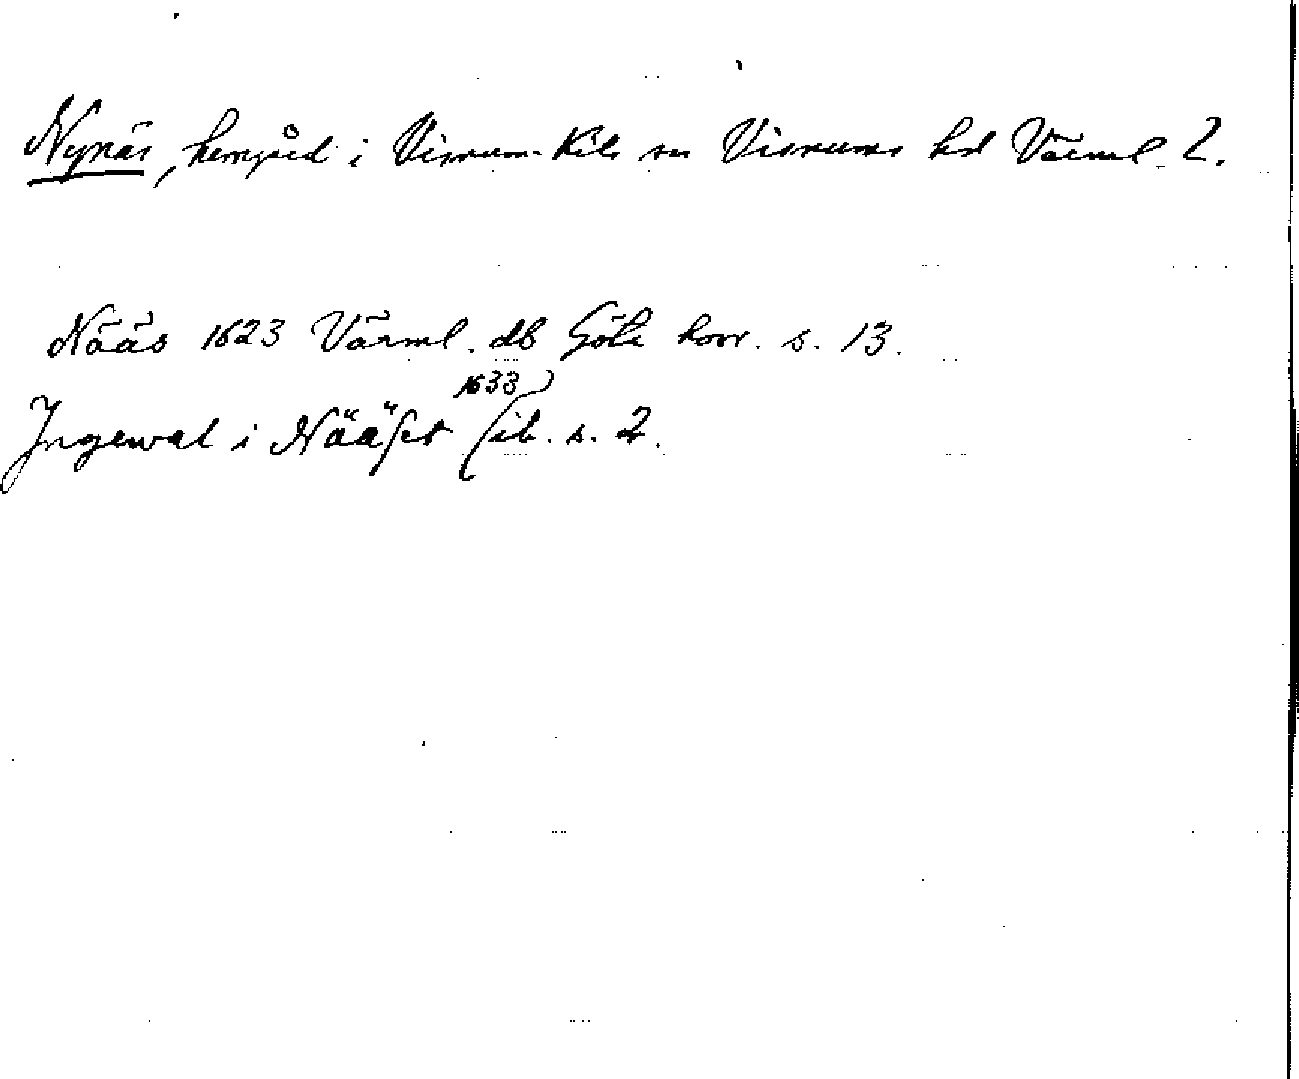 Nynäs, herrgård i Visnum-Kils sn Visnums hd Värml. l.
Nääs 1623 Värml. db Göta hovr. s. 13.
1633
Ingewal i Nääset (ib. s. 2.